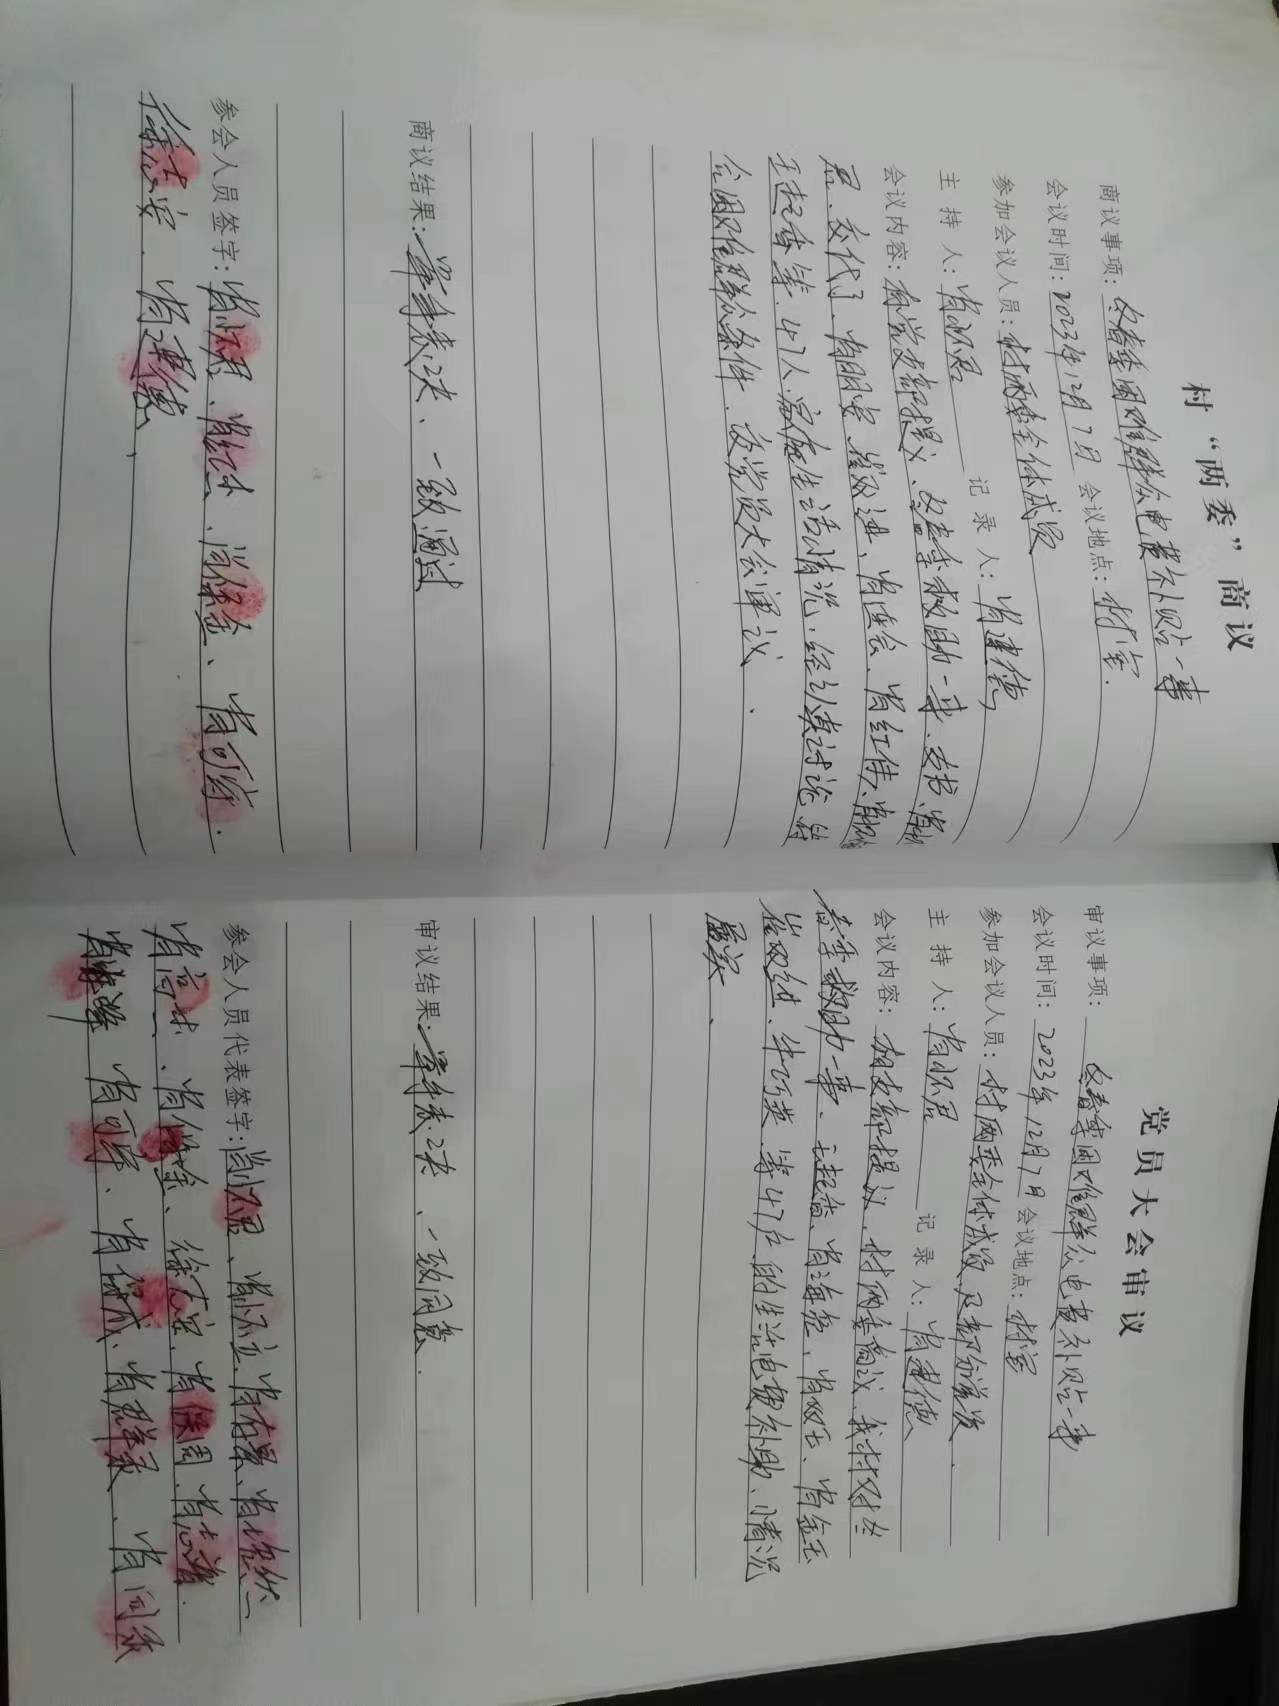 村“两委”商议
商议事项：冬春季困难群众电费补贴一事
会议时间：2023年12月7日 会议地点：村室.
参加会议人员：村两委全体成员
主 持 人：肖怀君 记 录 人：肖建德
会议内容：根党支部提议、冬春季救助一事、支书
君、交代了、肖明安 双进、肖连会、肖红伟、
王起香等、47人、家庭生活情况、经认真讨论、符
合困难群众条件、交党员大会审议.
商议结果：举手表决、一致通过
参会人员签字：肖怀君、肖保金、肖可序.
徐志安. 肖建德、
党员大会审议
审议事项：冬春季困难群众电费补贴一事
会议时间：2023年12月7日 会议地点：村室
参加会议人员：村两委全体成员及部分党员.
主 持 人：肖怀君 记 录 人：肖建德
会议内容：根支部提议、村两委商议、我村对冬
春季救助一事、王起香、肖海、肖双玉、肖金玉
崔双进、牛巧英、等47户的生活电费补助、情况
属实、
审议结果：举手表决、一致同意.
参会人员代表签字：肖怀君、肖怀立、肖
肖、肖保金、徐志安、肖保国、肖志
肖 肖可序、肖保成、肖群录、肖同